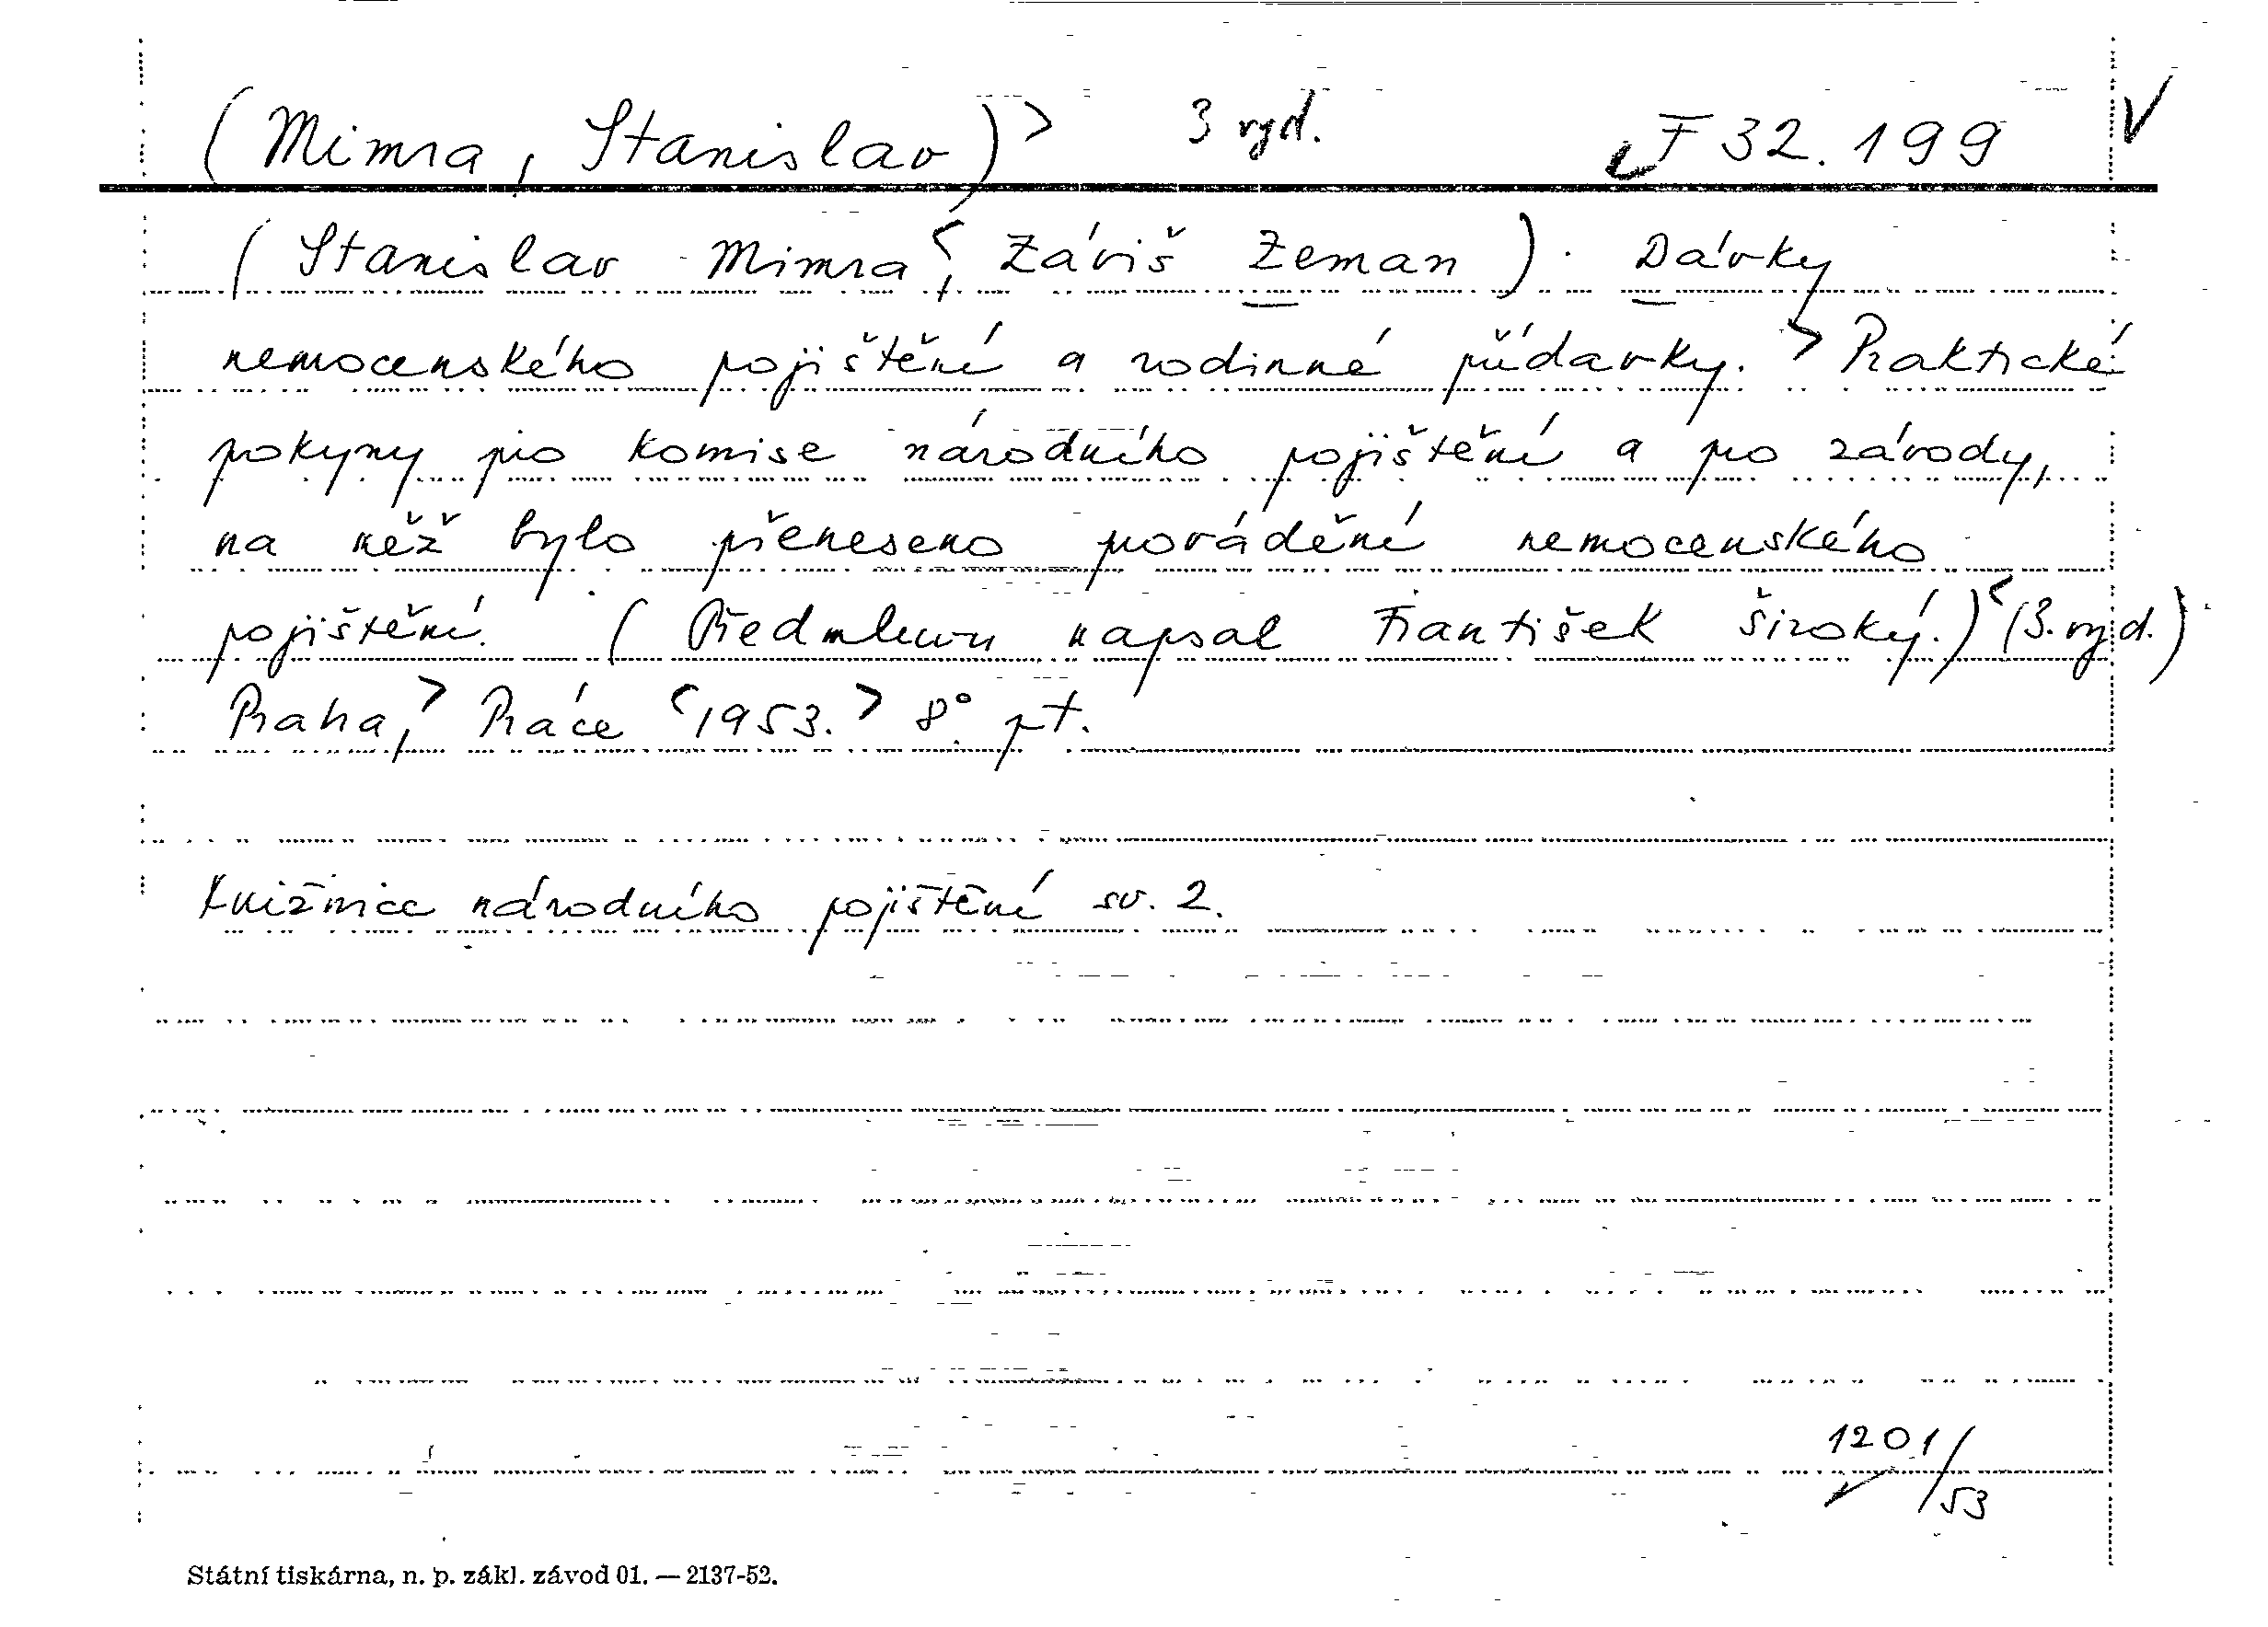 (Mimra, Stanislav)> 3 vyd. F 32.199 V
(Stanislav Mimra<, Záviš Zeman). Dávky
nemocenského pojištění a rodinné přídavky.> Praktické
pokyny pro komise národního pojištění a pro závody,
na něž bylo přeneseno provádění nemocenského
pojištění. (Předmluvu napsal František Široký.)< (3. vyd.)
Praha,> Práce <1953.> 8° pt.
Knižnice národního pojištění sv. 2.
1201/53
Státní tiskárna, n. p. zákl. závod 01. — 2137-52.